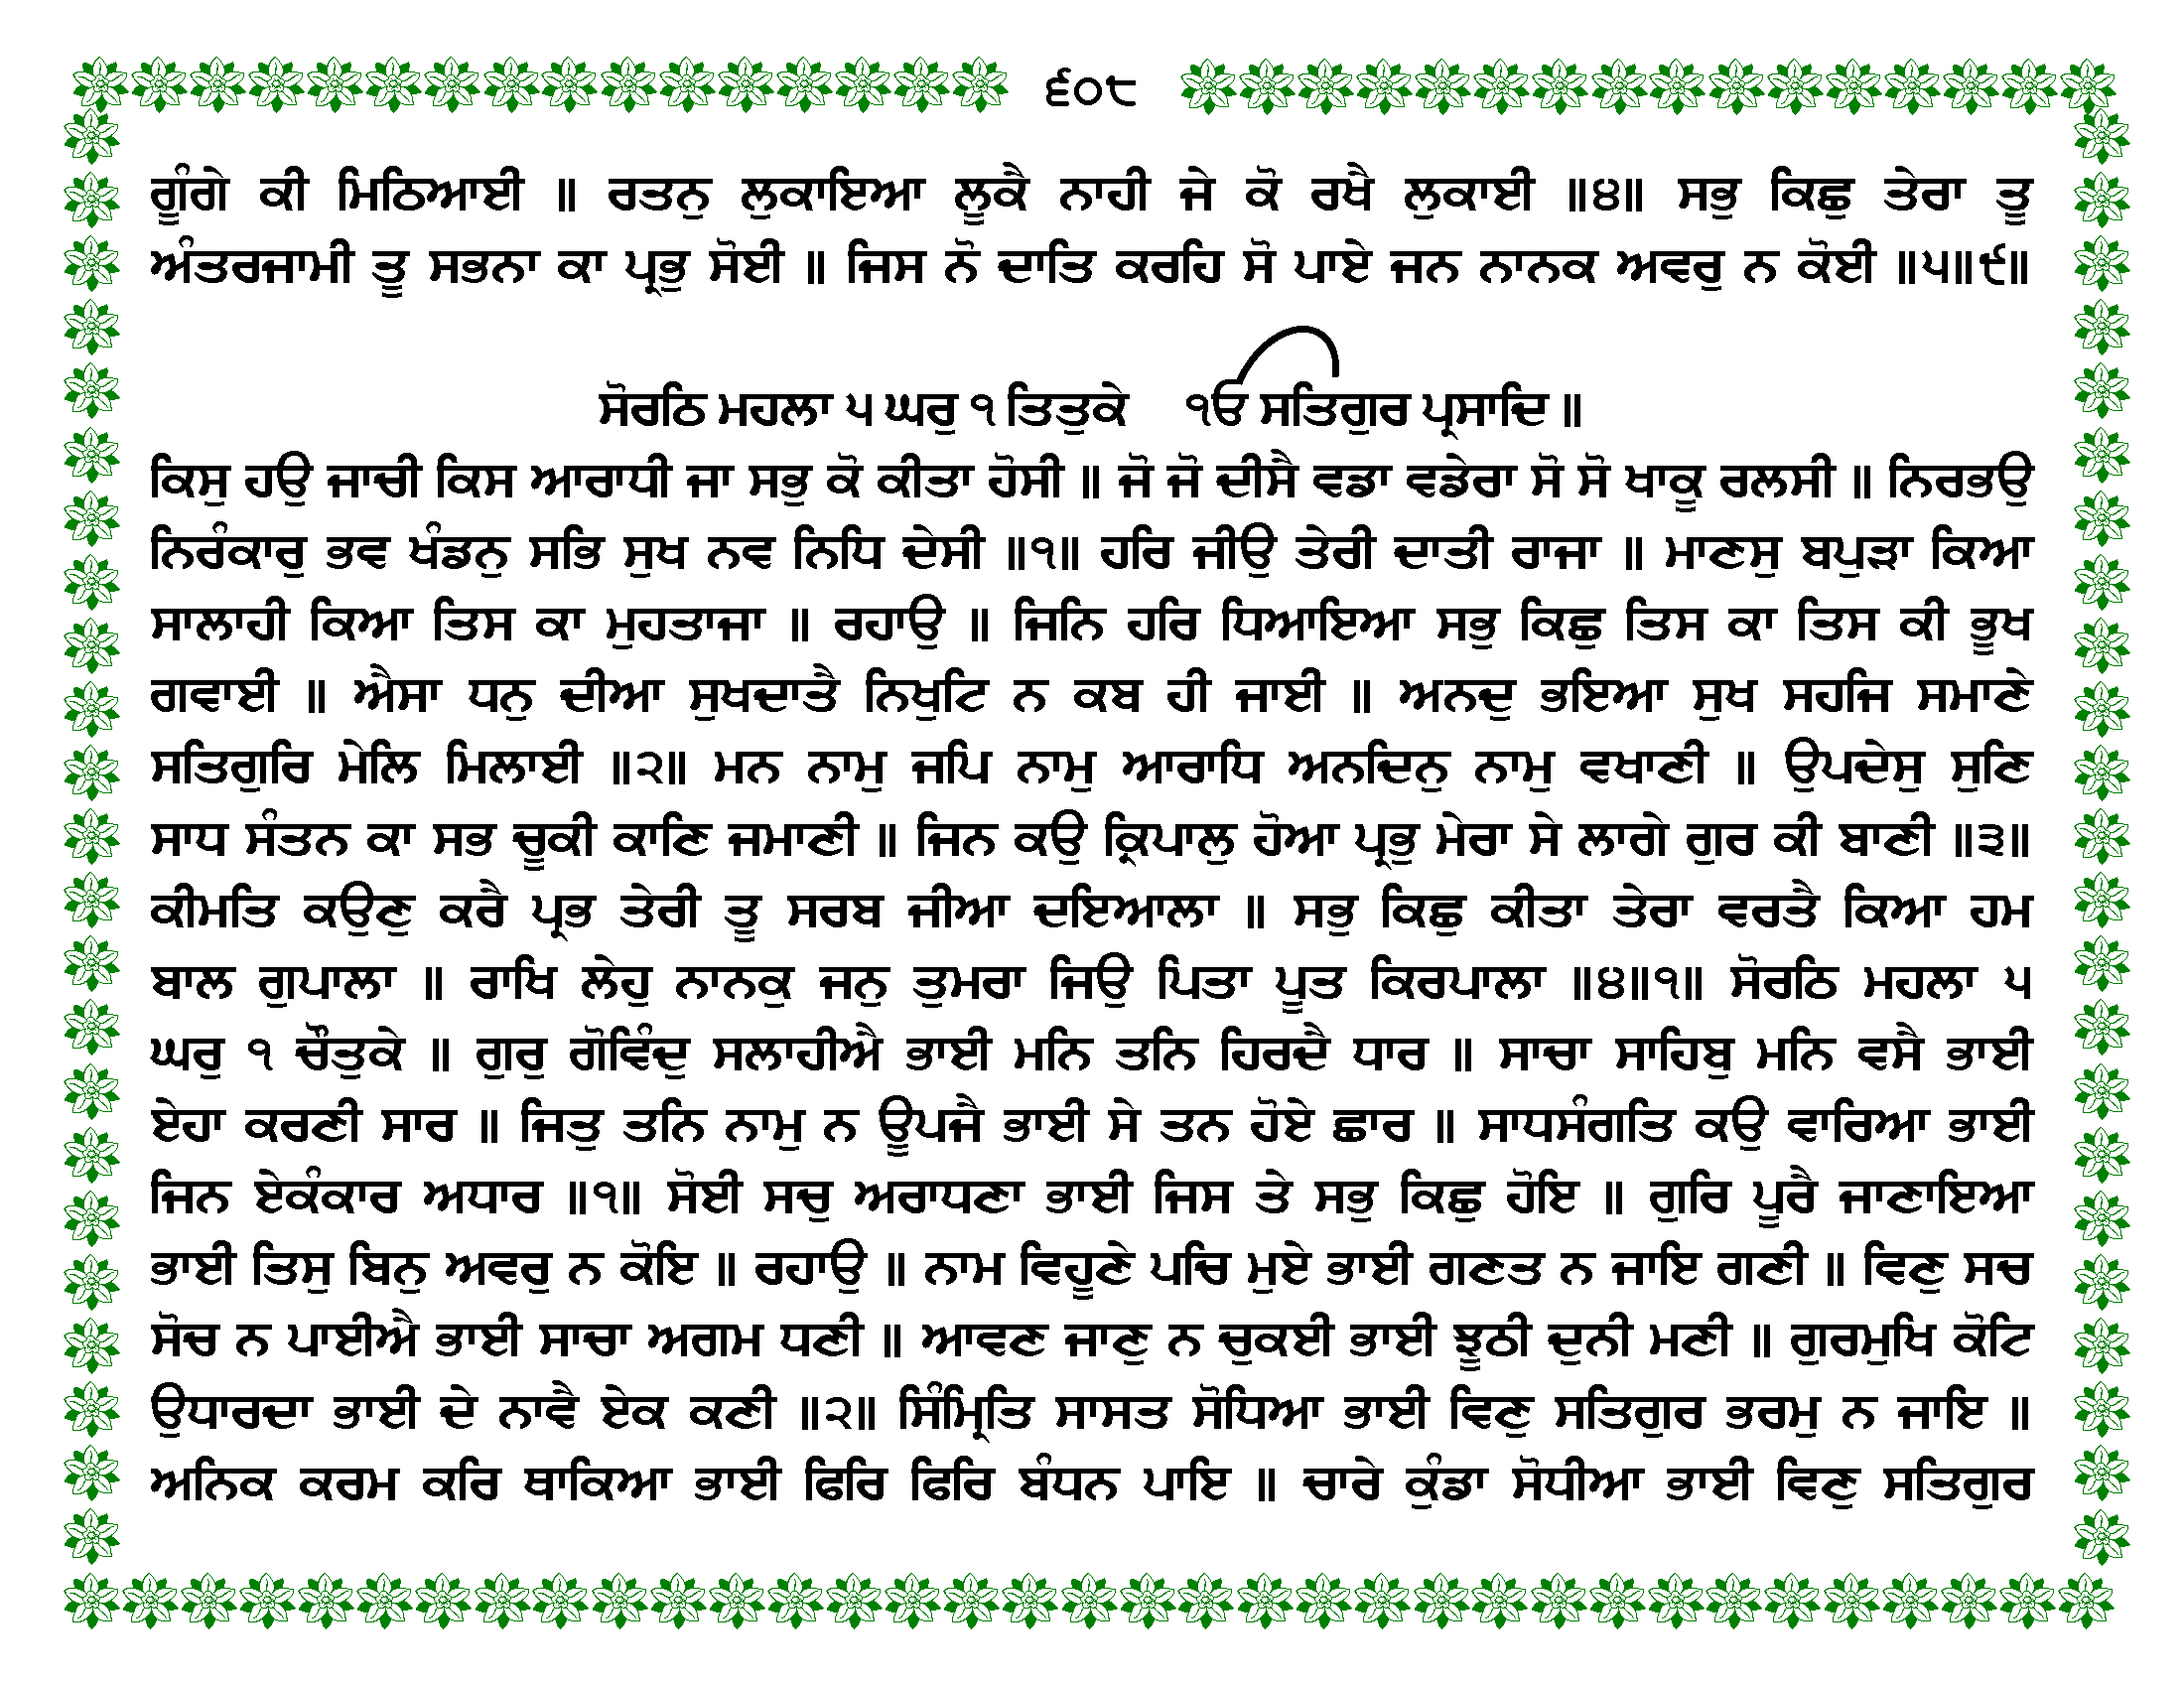 ੬੦੮
ਗੂੰਗੇ ਕੀ ਮਿਠਿਆਈ ॥ ਰਤਨੁ ਲੁਕਾਇਆ ਲੂਕੈ ਨਾਹੀ ਜੇ ਕੋ ਰਖੈ ਲੁਕਾਈ ॥੪॥ ਸਭੁ ਕਿਛੁ ਤੇਰਾ ਤੂ
ਅੰਤਰਜਾਮੀ ਤੂ ਸਭਨਾ ਕਾ ਪ੍ਰਭੁ ਸੋਈ ॥ ਜਿਸ ਨੋ ਦਾਤਿ ਕਰਹਿ ਸੋ ਪਾਏ ਜਨ ਨਾਨਕ ਅਵਰੁ ਨ ਕੋਈ ॥੫॥੯॥
ਸੋਰਠਿ ਮਹਲਾ ੫ ਘਰੁ ੧ ਤਿਤੁਕੇ ੴ ਸਤਿਗੁਰ ਪ੍ਰਸਾਦਿ ॥
ਕਿਸੁ ਹਉ ਜਾਚੀ ਕਿਸ ਆਰਾਧੀ ਜਾ ਸਭੁ ਕੋ ਕੀਤਾ ਹੋਸੀ ॥ ਜੋ ਜੋ ਦੀਸੈ ਵਡਾ ਵਡੇਰਾ ਸੋ ਸੋ ਖਾਕੂ ਰਲਸੀ ॥ ਨਿਰਭਉ
ਨਿਰੰਕਾਰੁ ਭਵ ਖੰਡਨੁ ਸਭਿ ਸੁਖ ਨਵ ਨਿਧਿ ਦੇਸੀ ॥੧॥ ਹਰਿ ਜੀਉ ਤੇਰੀ ਦਾਤੀ ਰਾਜਾ ॥ ਮਾਣਸੁ ਬਪੁੜਾ ਕਿਆ
ਸਾਲਾਹੀ ਕਿਆ ਤਿਸ ਕਾ ਮੁਹਤਾਜਾ ॥ ਰਹਾਉ ॥ ਜਿਨਿ ਹਰਿ ਧਿਆਇਆ ਸਭੁ ਕਿਛੁ ਤਿਸ ਕਾ ਤਿਸ ਕੀ ਭੂਖ
ਗਵਾਈ ॥ ਐਸਾ ਧਨੁ ਦੀਆ ਸੁਖਦਾਤੈ ਨਿਖੁਟਿ ਨ ਕਬ ਹੀ ਜਾਈ ॥ ਅਨਦੁ ਭਇਆ ਸੁਖ ਸਹਜਿ ਸਮਾਣੇ
ਸਤਿਗੁਰਿ ਮੇਲਿ ਮਿਲਾਈ ॥੨॥ ਮਨ ਨਾਮੁ ਜਪਿ ਨਾਮੁ ਆਰਾਧਿ ਅਨਦਿਨੁ ਨਾਮੁ ਵਖਾਣੀ ॥ ਉਪਦੇਸੁ ਸੁਣਿ
ਸਾਧ ਸੰਤਨ ਕਾ ਸਭ ਚੂਕੀ ਕਾਣਿ ਜਮਾਣੀ ॥ ਜਿਨ ਕਉ ਕ੍ਰਿਪਾਲੁ ਹੋਆ ਪ੍ਰਭੁ ਮੇਰਾ ਸੇ ਲਾਗੇ ਗੁਰ ਕੀ ਬਾਣੀ ॥੩॥
ਕੀਮਤਿ ਕਉਣੁ ਕਰੈ ਪ੍ਰਭ ਤੇਰੀ ਤੂ ਸਰਬ ਜੀਆ ਦਇਆਲਾ ॥ ਸਭੁ ਕਿਛੁ ਕੀਤਾ ਤੇਰਾ ਵਰਤੈ ਕਿਆ ਹਮ
ਬਾਲ ਗੁਪਾਲਾ ॥ ਰਾਖਿ ਲੇਹੁ ਨਾਨਕੁ ਜਨੁ ਤੁਮਰਾ ਜਿਉ ਪਿਤਾ ਪੂਤ ਕਿਰਪਾਲਾ ॥੪॥੧॥ ਸੋਰਠਿ ਮਹਲਾ ੫
ਘਰੁ ੧ ਚੌਤੁਕੇ ॥ ਗੁਰੁ ਗੋਵਿੰਦੁ ਸਲਾਹੀਐ ਭਾਈ ਮਨਿ ਤਨਿ ਹਿਰਦੈ ਧਾਰ ॥ ਸਾਚਾ ਸਾਹਿਬੁ ਮਨਿ ਵਸੈ ਭਾਈ
ਏਹਾ ਕਰਣੀ ਸਾਰ ॥ ਜਿਤੁ ਤਨਿ ਨਾਮੁ ਨ ਊਪਜੈ ਭਾਈ ਸੇ ਤਨ ਹੋਏ ਛਾਰ ॥ ਸਾਧਸੰਗਤਿ ਕਉ ਵਾਰਿਆ ਭਾਈ
ਜਿਨ ਏਕੰਕਾਰ ਅਧਾਰ ॥੧॥ ਸੋਈ ਸਚੁ ਅਰਾਧਣਾ ਭਾਈ ਜਿਸ ਤੇ ਸਭੁ ਕਿਛੁ ਹੋਇ ॥ ਗੁਰਿ ਪੂਰੈ ਜਾਣਾਇਆ
ਭਾਈ ਤਿਸੁ ਬਿਨੁ ਅਵਰੁ ਨ ਕੋਇ ॥ ਰਹਾਉ ॥ ਨਾਮ ਵਿਹੂਣੇ ਪਚਿ ਮੁਏ ਭਾਈ ਗਣਤ ਨ ਜਾਇ ਗਣੀ ॥ ਵਿਣੁ ਸਚ
ਸੋਚ ਨ ਪਾਈਐ ਭਾਈ ਸਾਚਾ ਅਗਮ ਧਣੀ ॥ ਆਵਣ ਜਾਣੁ ਨ ਚੁਕਈ ਭਾਈ ਝੂਠੀ ਦੁਨੀ ਮਣੀ ॥ ਗੁਰਮੁਖਿ ਕੋਟਿ
ਉਧਾਰਦਾ ਭਾਈ ਦੇ ਨਾਵੈ ਏਕ ਕਣੀ ॥੨॥ ਸਿੰਮ੍ਰਿਤਿ ਸਾਸਤ ਸੋਧਿਆ ਭਾਈ ਵਿਣੁ ਸਤਿਗੁਰ ਭਰਮੁ ਨ ਜਾਇ ॥
ਅਨਿਕ ਕਰਮ ਕਰਿ ਥਾਕਿਆ ਭਾਈ ਫਿਰਿ ਫਿਰਿ ਬੰਧਨ ਪਾਇ ॥ ਚਾਰੇ ਕੁੰਡਾ ਸੋਧੀਆ ਭਾਈ ਵਿਣੁ ਸਤਿਗੁਰ